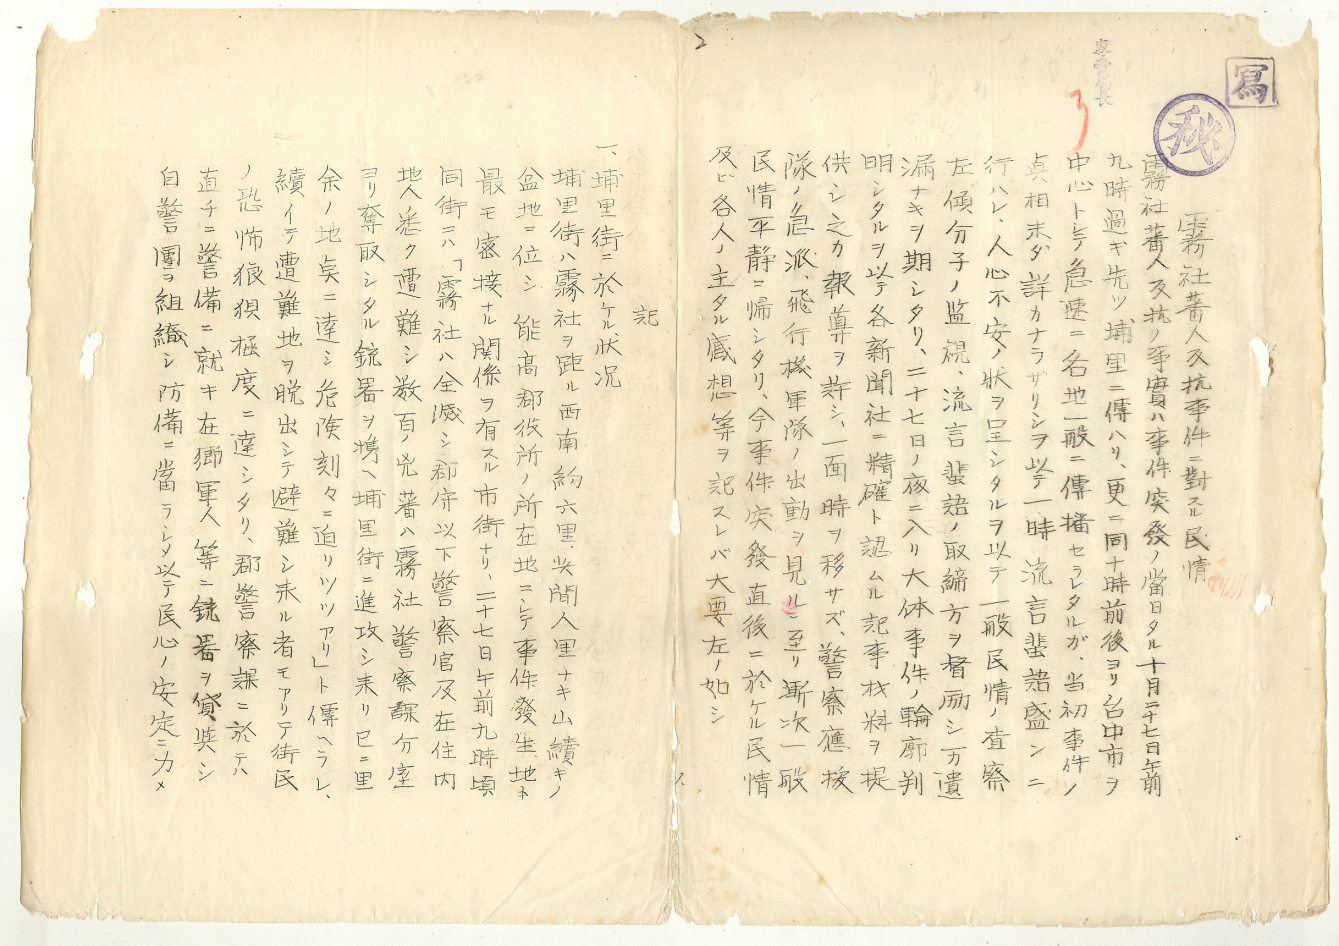 寫
秘
2
3
霧社蕃人反抗事件ニ對スル民情
霧社蕃人反抗ノ事實ハ事件突發ノ當日タル十月二十七日午前
九時過ギ先ツ埔里ニ傳ハリ、更ニ同十時前後ヨリ台中市ヲ
中心トシテ急速ニ各地一般ニ傳播セラレタルガ、当初事件ノ
真相未ダ詳カナラザリシヲ以テ一時流言蜚語盛ンニ
行ハレ、人心不安ノ狀ヲ呈シタルヲ以テ一般民情ノ査察
左傾分子ノ監視、流言蜚語ノ取締方ヲ督励シ万遺
漏ナキヲ期シタリ、二十七日ノ夜ニ入リ大体事件ノ輪廓判
明シタルヲ以テ各新聞社ニ精確ト認ムル記事材料ヲ提
供シ之カ報導ヲ許シ、一面時ヲ移サズ、警察應援
隊ノ急派、飛行機軍隊ノ出動ヲ見ルニ至リ漸次一般
民情平靜ニ帰シタリ、今事件突發直後ニ於ケル民情
及ビ各人ノ主タル感想等ヲ記スレバ大要左ノ如シ
記
一、埔里街ニ於ケル狀況
埔里街ハ霧社ヲ距ル西南約六里、其間人里ナキ山續キノ
盆地ニ位シ能高郡役所ノ所在地ニシテ事件發生地ト
最モ密接ナル関係ヲ有スル市街ナリ、二十七日午前九時頃
同街ニハ「霧社ハ全滅シ郡守以下警察官及在住内
地人悉ク遭難シ数百ノ兇蕃ハ霧社警察課分室
ヨリ奪取シタル銃器ヲ携ヘ埔里街ニ進攻シ来リ已ニ里
余ノ地点ニ達シ危険刻々ニ迫リツツアリ」ト傳ヘラレ、
續イテ遭難地ヲ脱出シテ避難シ来ル者モアリテ街民
ノ恐怖狼狽極度ニ達シタリ、郡警察課ニ於テハ
直チニ警備ニ就キ在郷軍人等ニ銃器ヲ貸與シ
自警團ヲ組織シ防備ニ當ラシメ以テ民心ノ安定ニ力メ